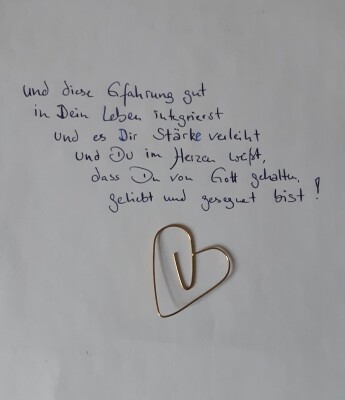 und diese Erfahrung gut
in Dein Leben integrierst
und es Dir Stärke verleiht
und Du im Herzen weißt,
dass Du von Gott gehalten,
geliebt und gesegnet bist!